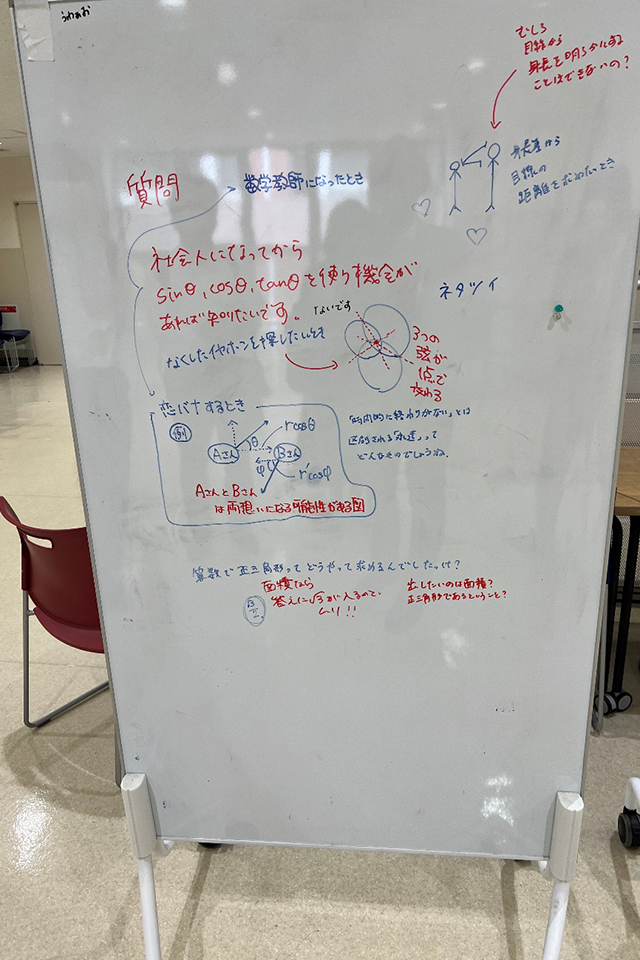 うわぁお
むしろ
目線から
身長を明らかにする
ことはできないの?
質問
数学教師になったとき
身長差から
目線の
距離を求めたいとき
社会人になってから
sinθ、cosθ、tanθを使う機会が
あれば知りたいです。
ネタツイ
ないです
なくしたイヤホンを探したいとき
3つの
弦が
1点で
交わる
恋バナするとき
例
rcosθ
θ
Aさん
Bさん
φ
r'cosφ
AさんとBさん
は両想いになる可能性がある図
に終わりがない」とは
区別される「永遠」って
どんなものでしょうね.
算数で正三角形ってどうやって求めるんでしたっけ?
面積なら
答えに√3が入るので、
ムリ!!
出したいのは面積?
正三角形であるということ?